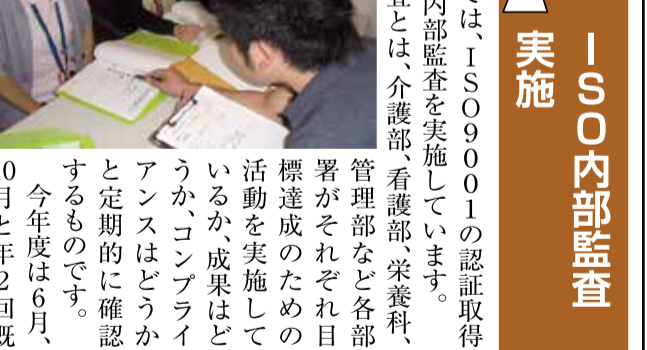 ISO内部監査
実施
では、ISO9001の認証取得
内部監査を実施しています。
査とは、介護部、看護部、栄養科、
管理部など各部
署がそれぞれ目
標達成のための
活動を実施して
いるか、成果はど
うか、コンプライ
アンスはどうか
と定期的に確認
するものです。
今年度は6月、
0月と年2回既